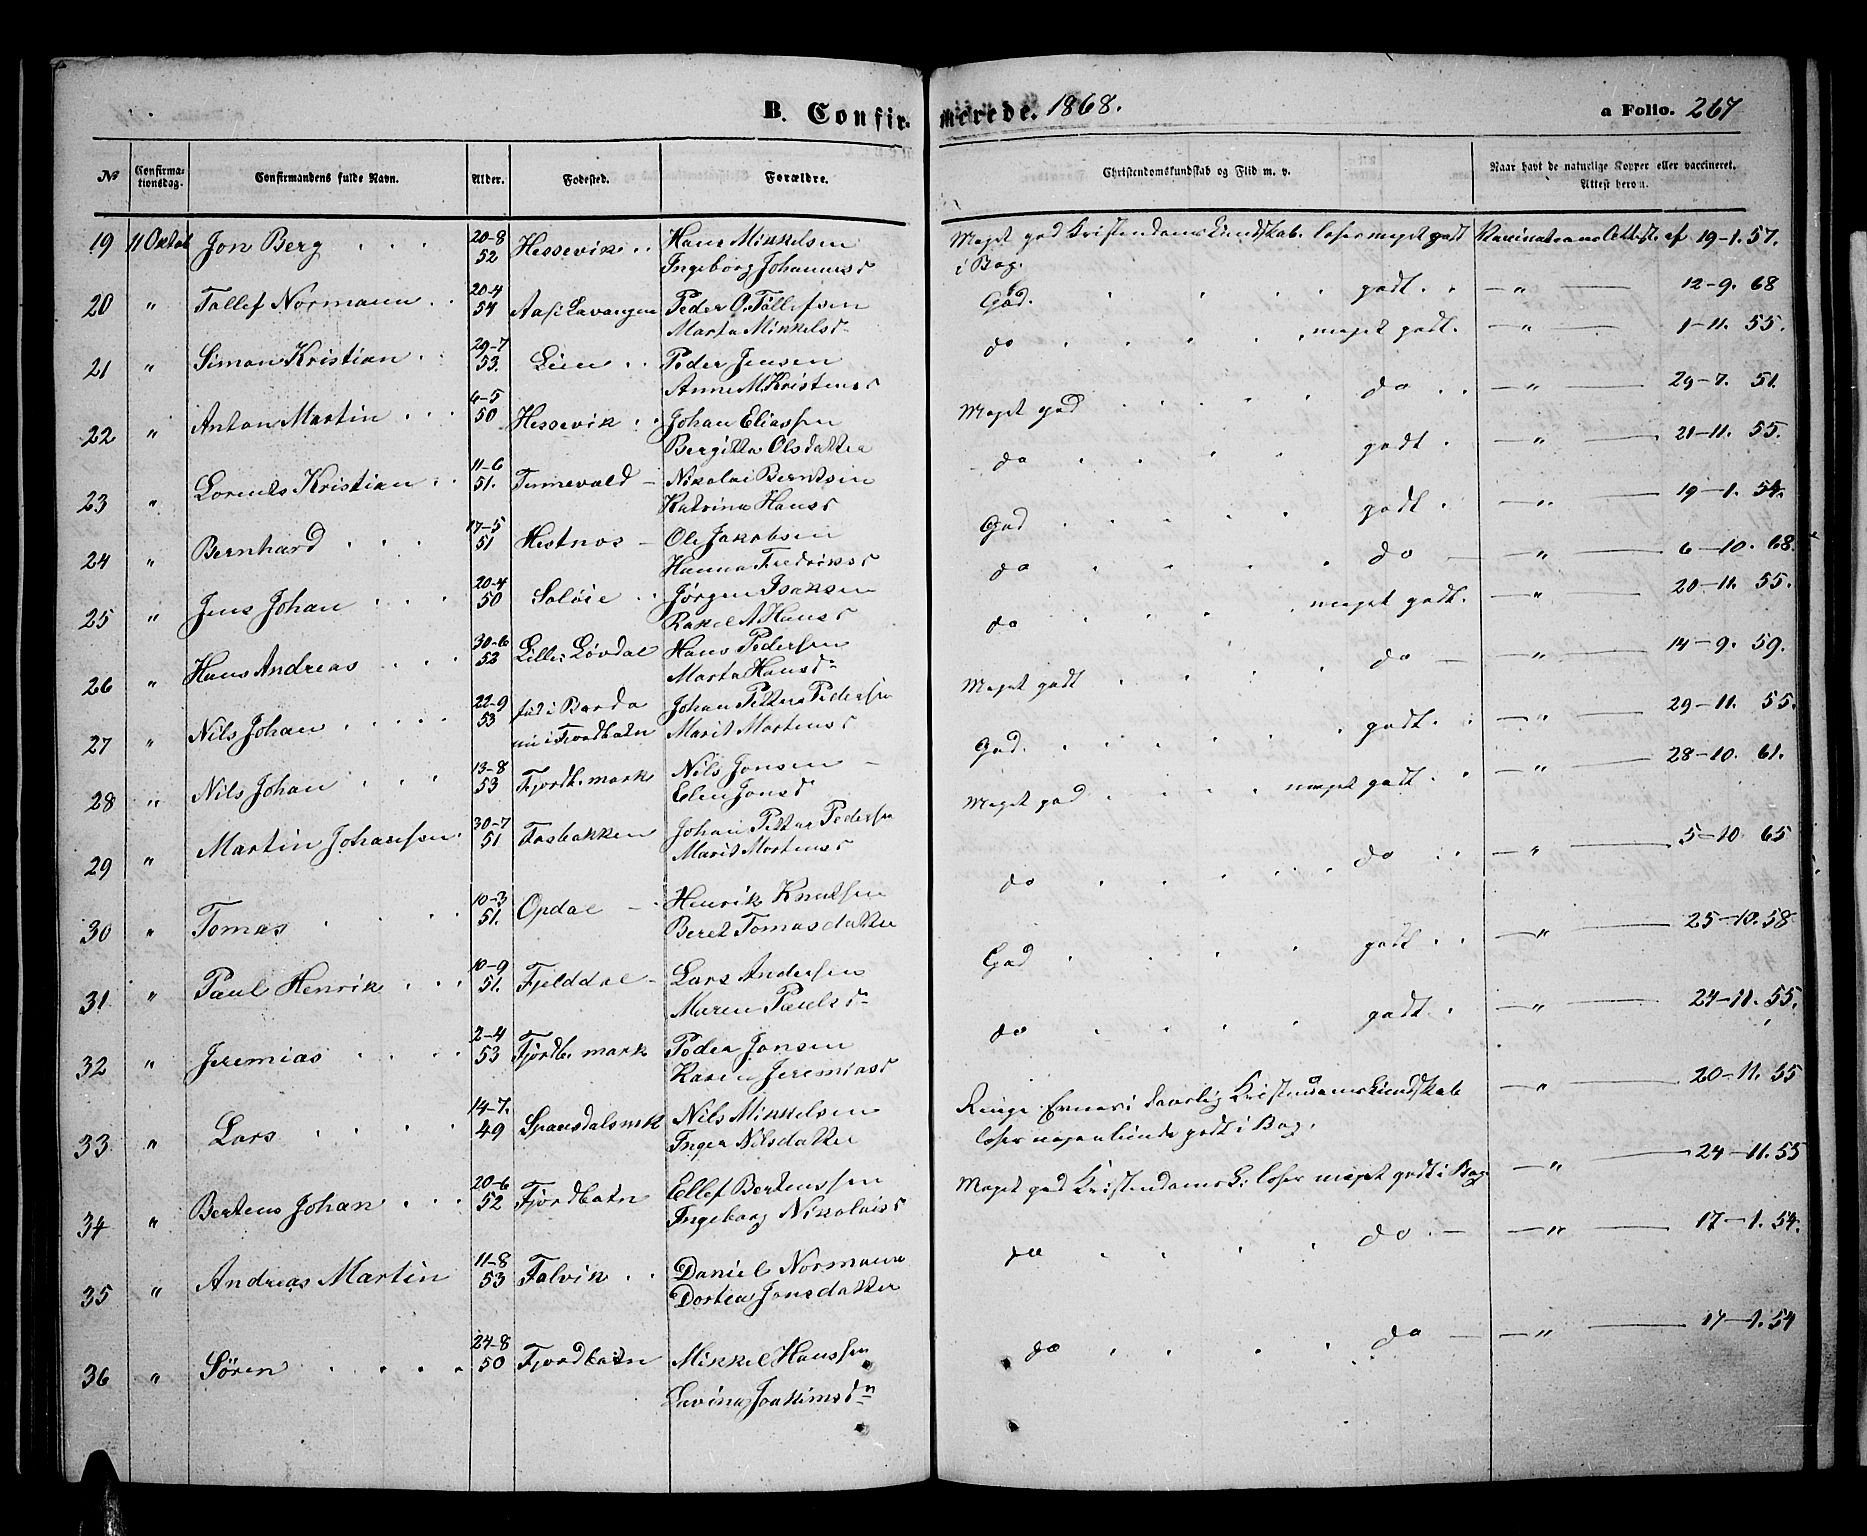 B. Confirmerede. 1868.
a Folio. 267
No
Confirmationsdag.
Confirmandens fulde Navn.
Alder.
Fodested.
Forældre.
Christendomskundskab og Flid m. v.
Naar havt de naturlige Kopper eller vaccineret. Attest herom.
19 11 Oktob Jon Berg 20-8 52 Hessevik Hans Mikkelsen Meget god Kristendomskundskab. læser meget godt Vaccinations Attest af 19-1. 57.
Ingeborg Johannesd i Bog.
20 " Tollef Normann 20-4 54 Peder O. Tollefsen God. godt. " 12-9. 68
Marta Mikkelsd
21 " Simon Kristian 29-7 53. Lien Peder Jensen do meget godt. " 1-11. 55.
Anne M Kristensd
22 " Anton Martin 6-5 50 Hessevik Johan Eliassen Meget god do " 29-7. 51.
Bergitta Olsdatter
23 " Lorents Kristian 11-6 51. Tennevold Nikolai Berntsen do godt " 21-11. 55.
Katrina Hansd
24 " Bernhard 17-5 51 Hestnes Ole Jakobsen God godt " 19-1. 54.
Hanna Fredriksd
25 " Jens Johan 20-4 50 Soløie Jørgen Isaksen do do " 6-10. 68.
Rakel A Hansd
26 " Hans Andreas 30-6 53 Lille Løvdal Hans Pedersen do meget godt. " 20-11. 55.
Marta Hansd
27 " Nils Johan 22-9 53 fød i Bardo Johan Petter Pedersen Meget godt do " 14-9. 59.
nu i Fjordbotn Marit Mortensd
28 " Nils Johan 13-8 53 Fjordb. mark Nils Jonsen God. godt. " 29-11. 55.
Elen Jonsd
29 " Martin Johansen 30-7 51 Fosbakken Johan Petter Pedersen Meget god meget godt " 28-10. 61.
Marit Mortensd
30 " Tomas 10-3 51. Opdal Henrik Knutsen do do " 5-10 65
Beret Tomasdatter
31 " Paul Henrik 10-9 51. Fjelddal Lars Andersen God godt " 25-10. 58
Maren Paulsd
32 " Jeremias 2-4 53 Fjordb. mark Peder Jonsen do godt. " 24-11. 55.
Karen Jeremiasd
33 " Lars 14-7. 49 Spansdalsmk Nils Mikkelsen Ringe Evner i daarlig Kristendomskundskab " 20-11. 55
Inger Nilsdatter læser nogenlunde godt i Bog.
34 " Berteus Johan 20-6 52 Fjordbotn Ellef Bertenssen Meget god Kristendomsk. læser meget godt i Bog " 24-11. 55
Ingeborg Nikolaisd
35 " Andreas Martin 11-8 53 Falvik Daniel Normann do do " 17-1. 54.
Dortea Jonsdatter
36 " Sören 24-8 50 Fjordbotn Mikkel Hanssen do do " 17-1. 54
Lavina Joakimsd